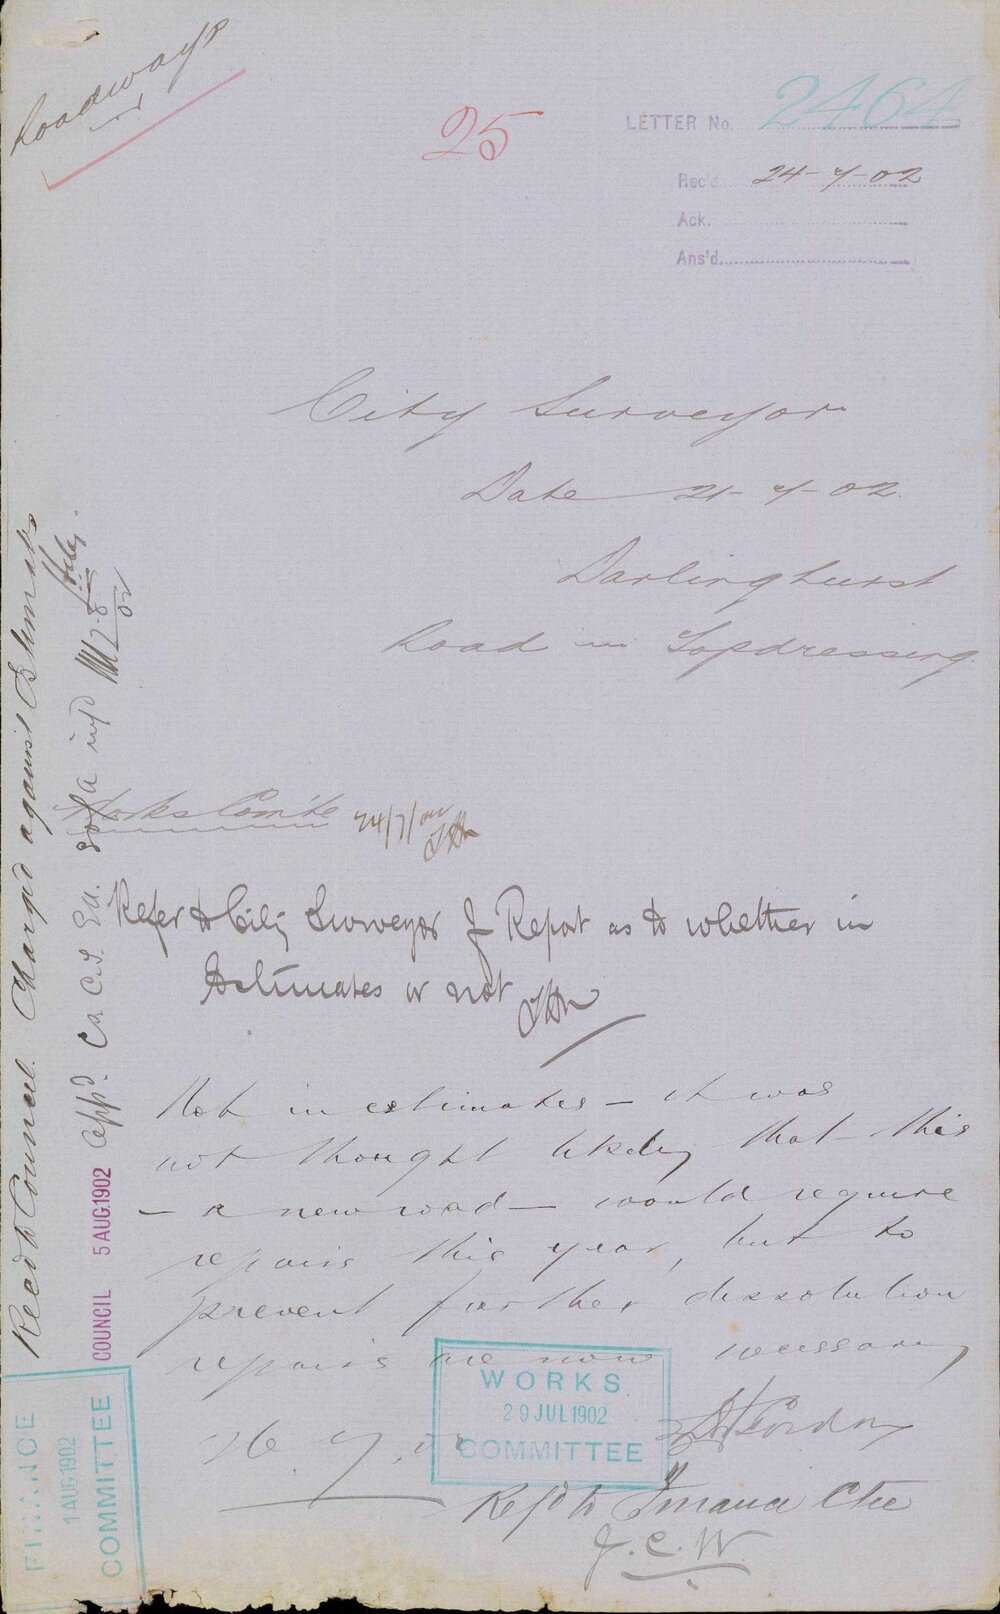 Roadways
25
LETTER No. 2464
Rec'd 24-7-02
Ack.
Ans'd
City Surveyor
Date 21-7-02.
Darlinghurst
Road Topdressing
Works Com'te 24/7/02
Refer to City Surveyor for Report as to whether in
Estimates or not
Not in estimates – it was
not thought likely that this
– a new road – would require
repairs this year, but to
prevent further dissolution
repairs are now necessary
26.7.02
WORKS
29 JUL 1902
COMMITTEE
Ref'd to Finance Ctee
J.C.W.
Rec'd to Council. Charged against Estimates
COUNCIL 5 AUG 1902 app'd.
FINANCE
1 AUG 1902
COMMITTEE